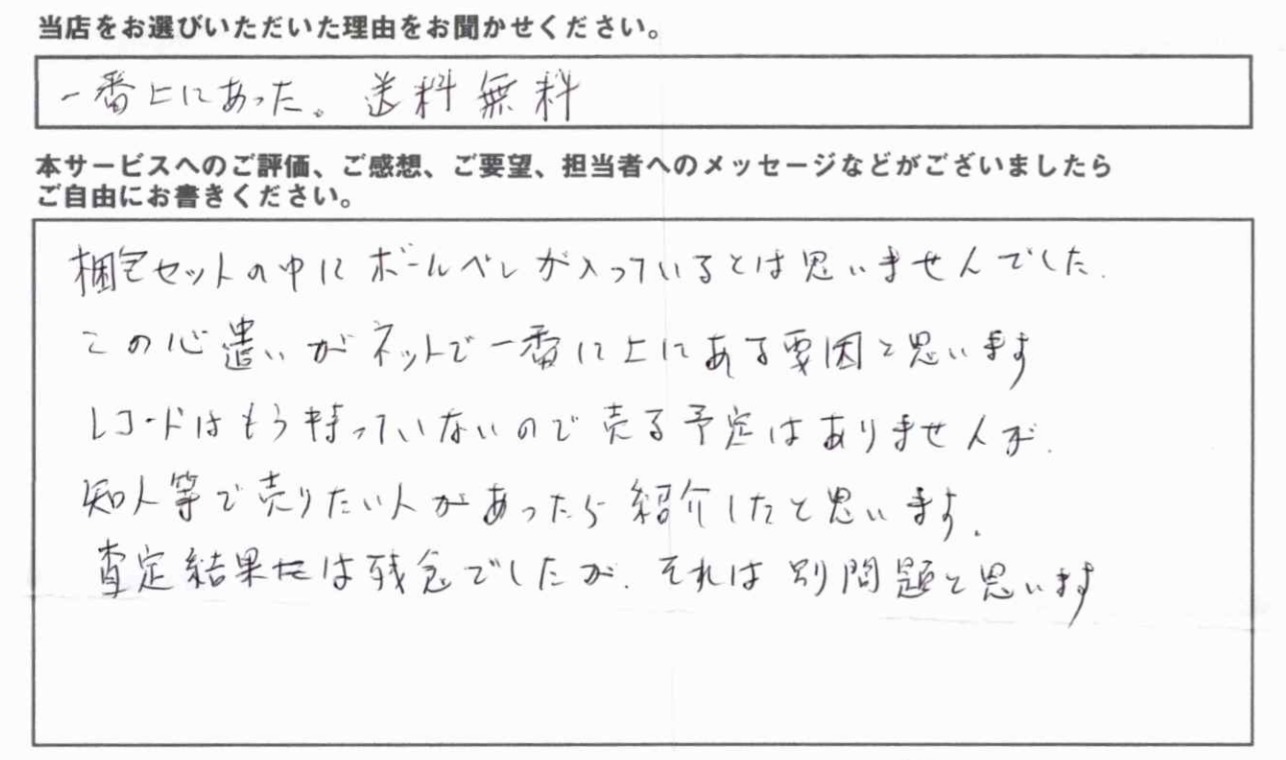 当店をお選びいただいた理由をお聞かせください。
一番上にあった。送料無料
本サービスへのご評価、ご感想、ご要望、担当者へのメッセージなどがございましたら
ご自由にお書きください。
梱包セットの中にボールペンが入っているとは思いませんでした.
この心遣いがネットで一番に上にある要因と思います
レコードはもう持っていないので売る予定はありませんが.
知人等で売りたい人があったら紹介したと思います.
査定結果は残念でしたが.それは別問題と思います